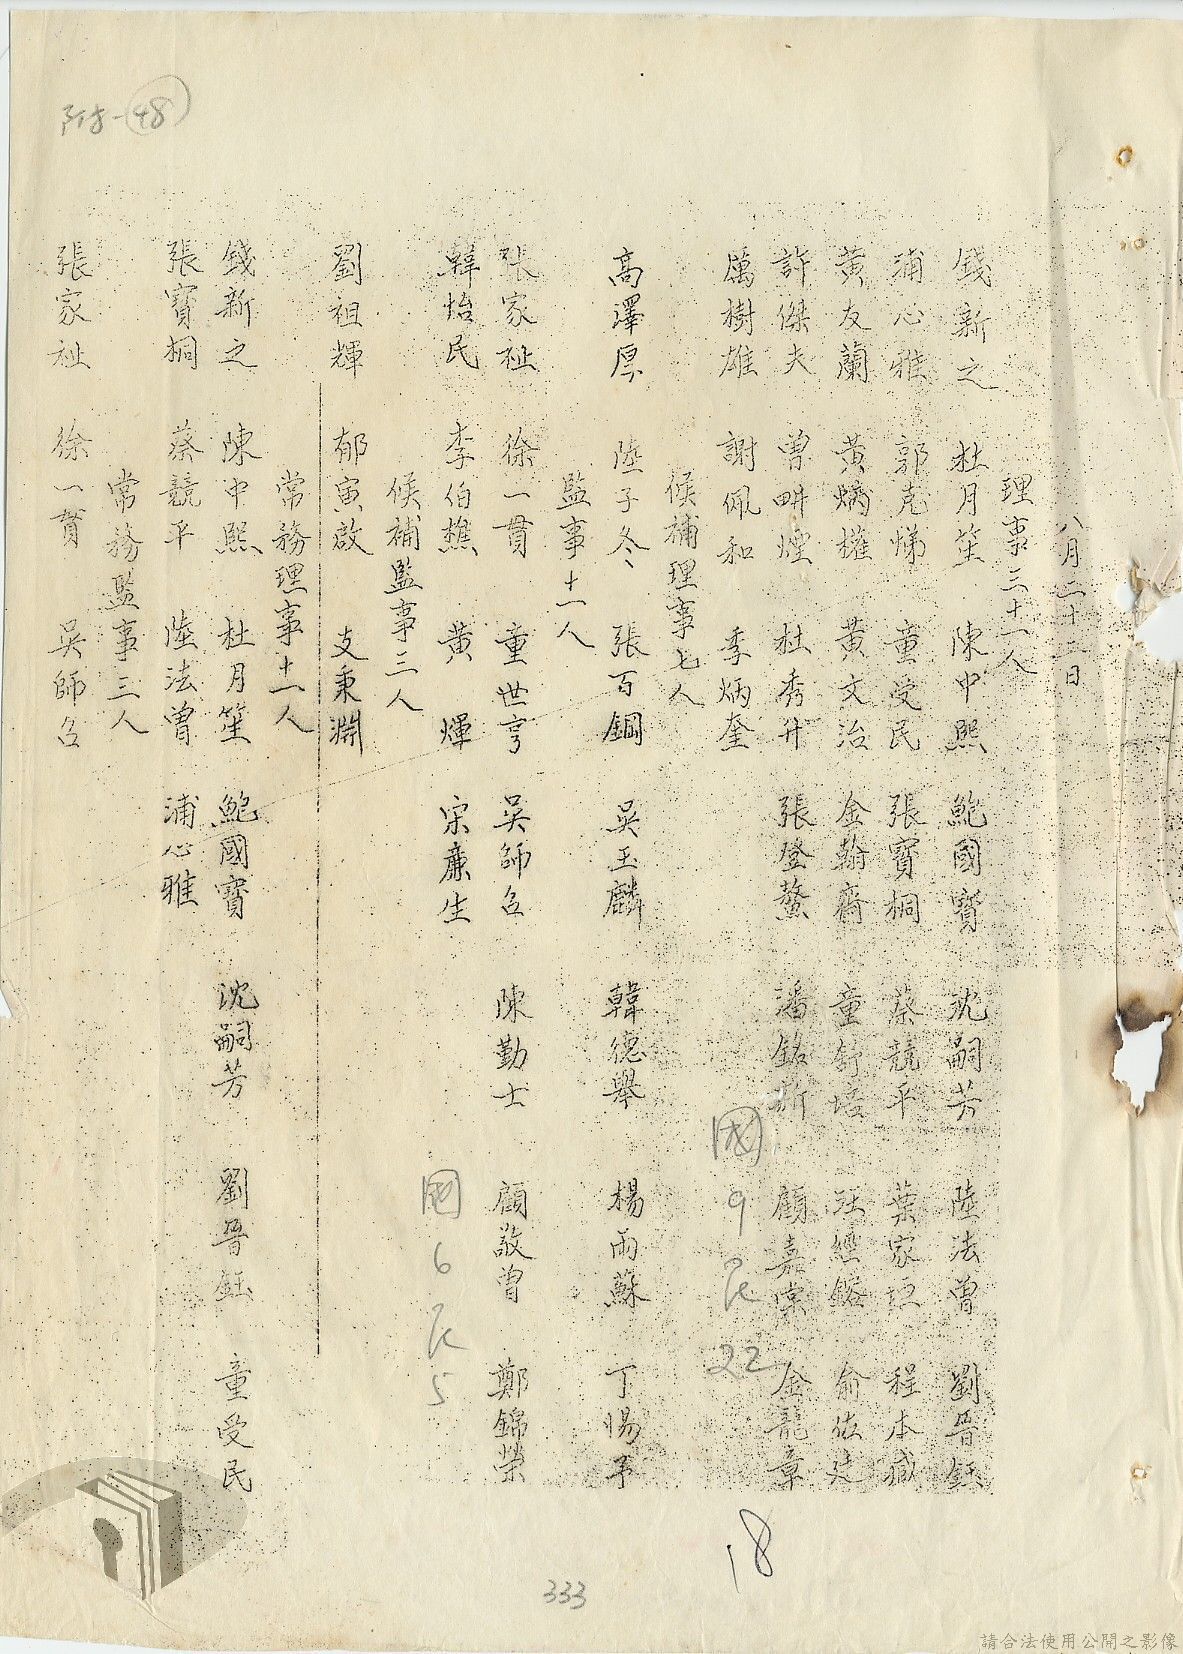 附-48
八月二十二日
理事三十一人
錢新之 杜月笙 陳中熙 鮑國寶 沈嗣芳 陸法曾 劉晉鈺
浦心雅 郭克悌 童受民 張寶桐 蔡競平 葉家垣 程本臧
黃友蘭 黃炳權 黃文治 金翰齋 童舒培 汪經鎔 俞佐廷
許傑夫 曾畊煙 杜秀升 張登鰲 潘銘新 顧嘉棠 金龍章
厲樹雄 謝佩和 季炳奎
國9民22
候補理事七人
高澤厚 陸子冬 張百鋼 吳玉麟 韓德舉 楊雨蘇 丁惕予
監事十一人
張家祉 徐一貫 童世亨 吳師召 陳勤士 顧敬曾 鄭錦榮
韓怡民 李伯樵 黃煇 宋廉生
國6民5
候補監事三人
劉祖輝 郁寅啟 支秉淵
常務理事十一人
錢新之 陳中熙 杜月笙 鮑國寶 沈嗣芳 劉晉鈺 童受民
張寶桐 蔡競平 陸法曾 浦心雅
常務監事三人
張家祉 徐一貫 吳師召
18
333
請合法使用公開之影像